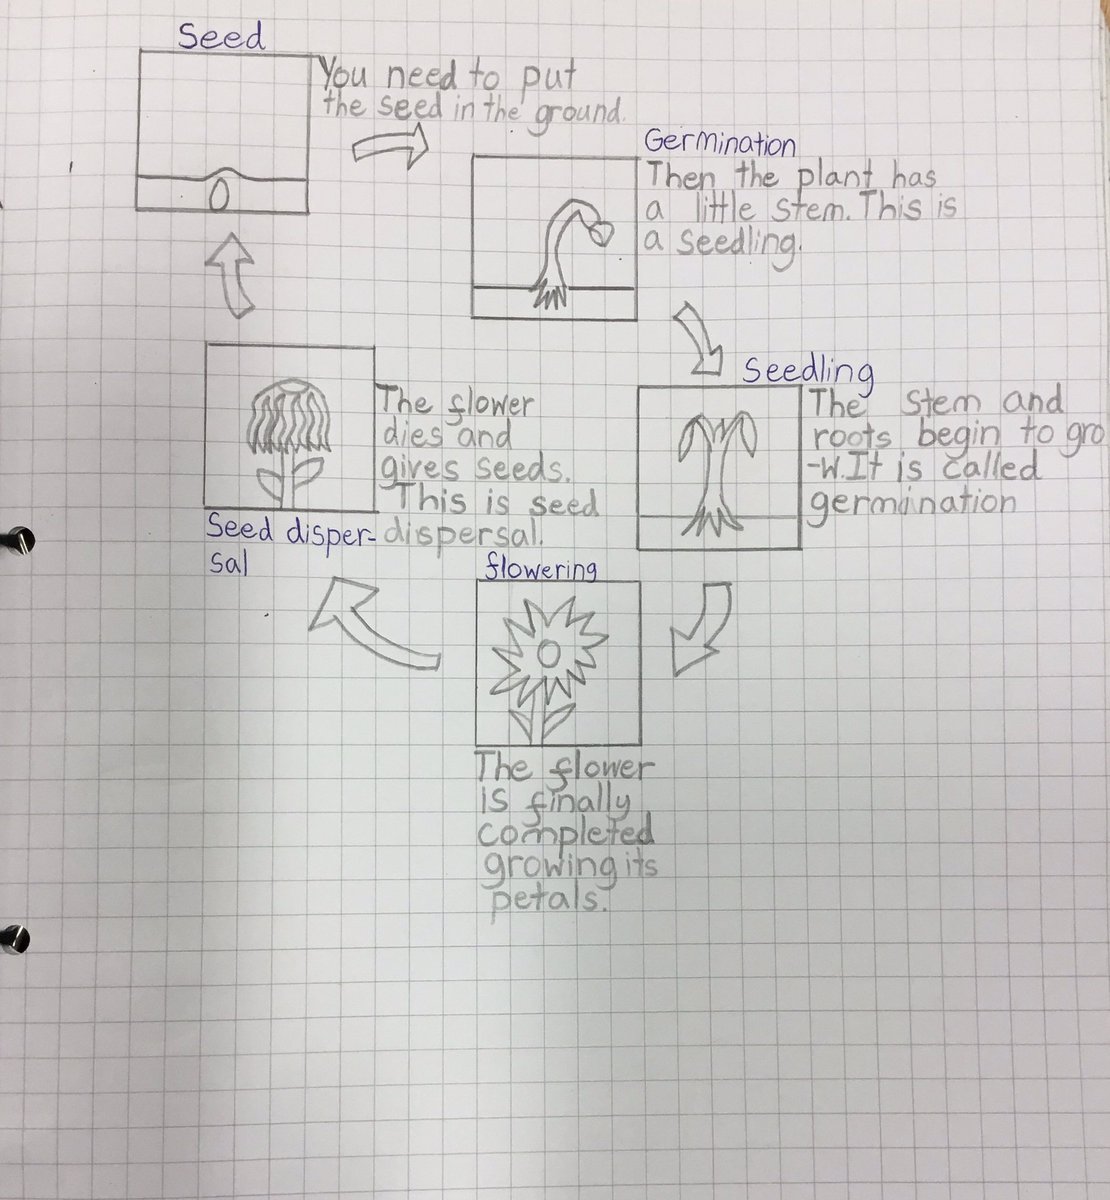 Seed
You need to put
the seed in the ground.
Germination
Then the plant has
a little stem. This is
a seedling.
Seedling
The stem and
roots begin to gro
-w. It is called
germination
flowering
The flower
is finally
completed
growing its
petals.
The flower
dies and
gives seeds.
This is seed
dispersal.
Seed disper-
sal